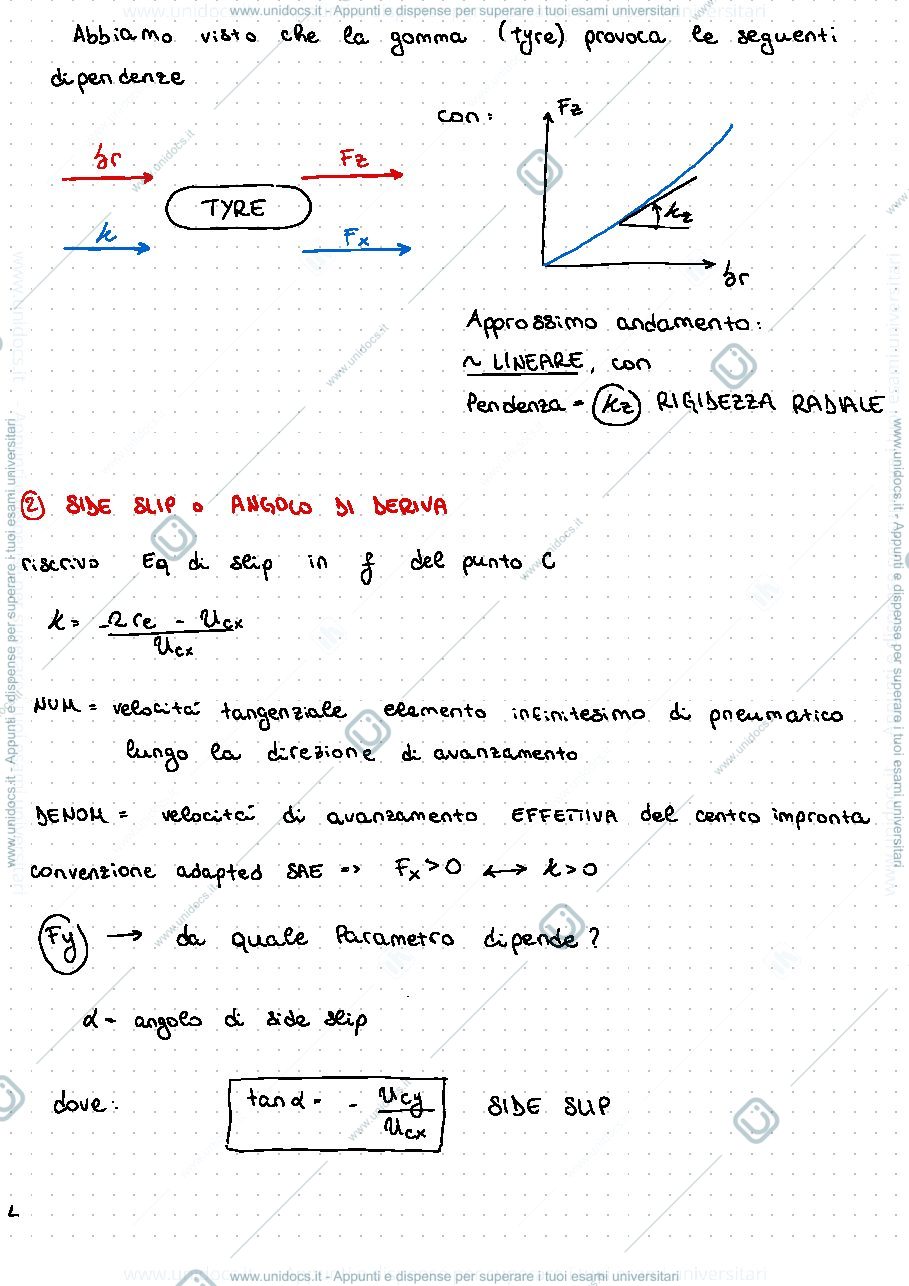 www.unidocs.it - Appunti e dispense per superare i tuoi esami universitari
Abbiamo visto che la gomma (tyre) provoca le seguenti
dipendenze
con:
δr
Fz
TYRE
k
Fx
Fz
kz
δr
Approssimo andamento:
~ LINEARE, con
Pendenza = kz RIGIDEZZA RADIALE
② SIDE SLIP o ANGOLO DI DERIVA
riscrivo Eq di slip in f del punto C
k = Ω re - Ucx
Ucx
NUM = velocità tangenziale elemento infinitesimo di pneumatico
lungo la direzione di avanzamento
DENOM = velocità di avanzamento EFFETTIVA del centro impronta
convenzione adapted SAE => Fx > 0 ↔ k > 0
Fy → da quale Parametro dipende?
α = angolo di side slip
dove: tan α = - Ucy SIDE SLIP
Ucx
www.unidocs.it - Appunti e dispense per superare i tuoi esami universitari
www.unidocs.it - Appunti e dispense per superare i tuoi esami universitari
www.unidocs.it - Appunti e dispense per superare i tuoi esami universitari